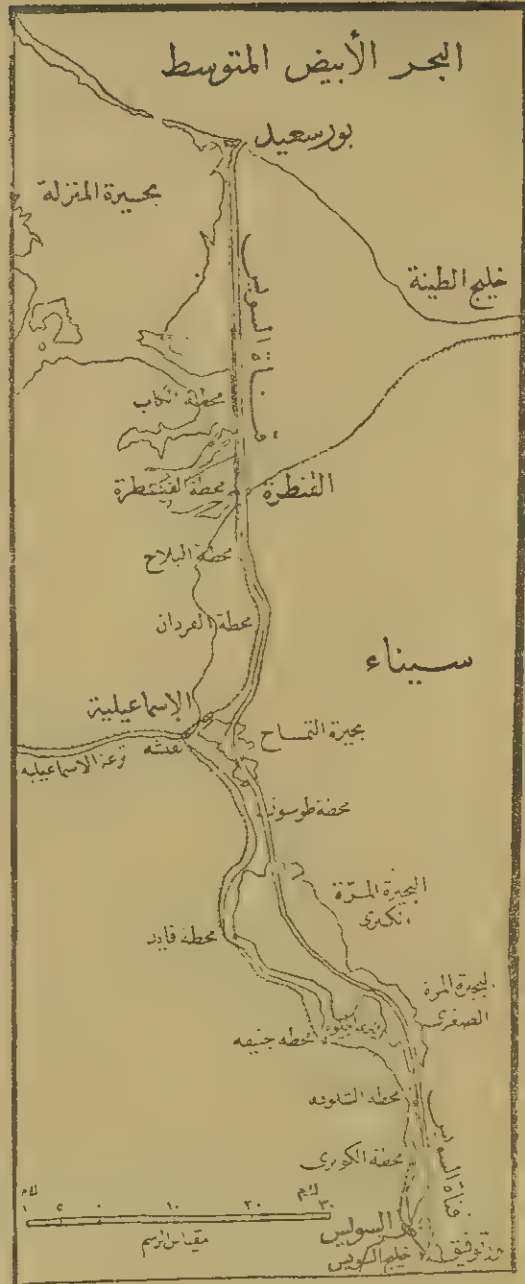 البحر الأبيض المتوسط
بورسعيد
بحيرة المنزلة
خليج الطينة
قناة السويس
محطة الكاب
القنطرة
محطة القنطرة
محطة البلاح
محطة الفردان
سيناء
الإسماعيلية
بحيرة التمساح
ترعة الاسماعيلية
محطة طوسون
البحيرة المرة
الكبرى
محطة فايد
البحيرة المرة
الصغرى
محطة جنيفه
محطة الشلوفه
محطة الكوبرى
قناة السويس
السويس
خليج السويس
كم ١٠ ٢٠ ٣٠ كم
مقياس الرسم